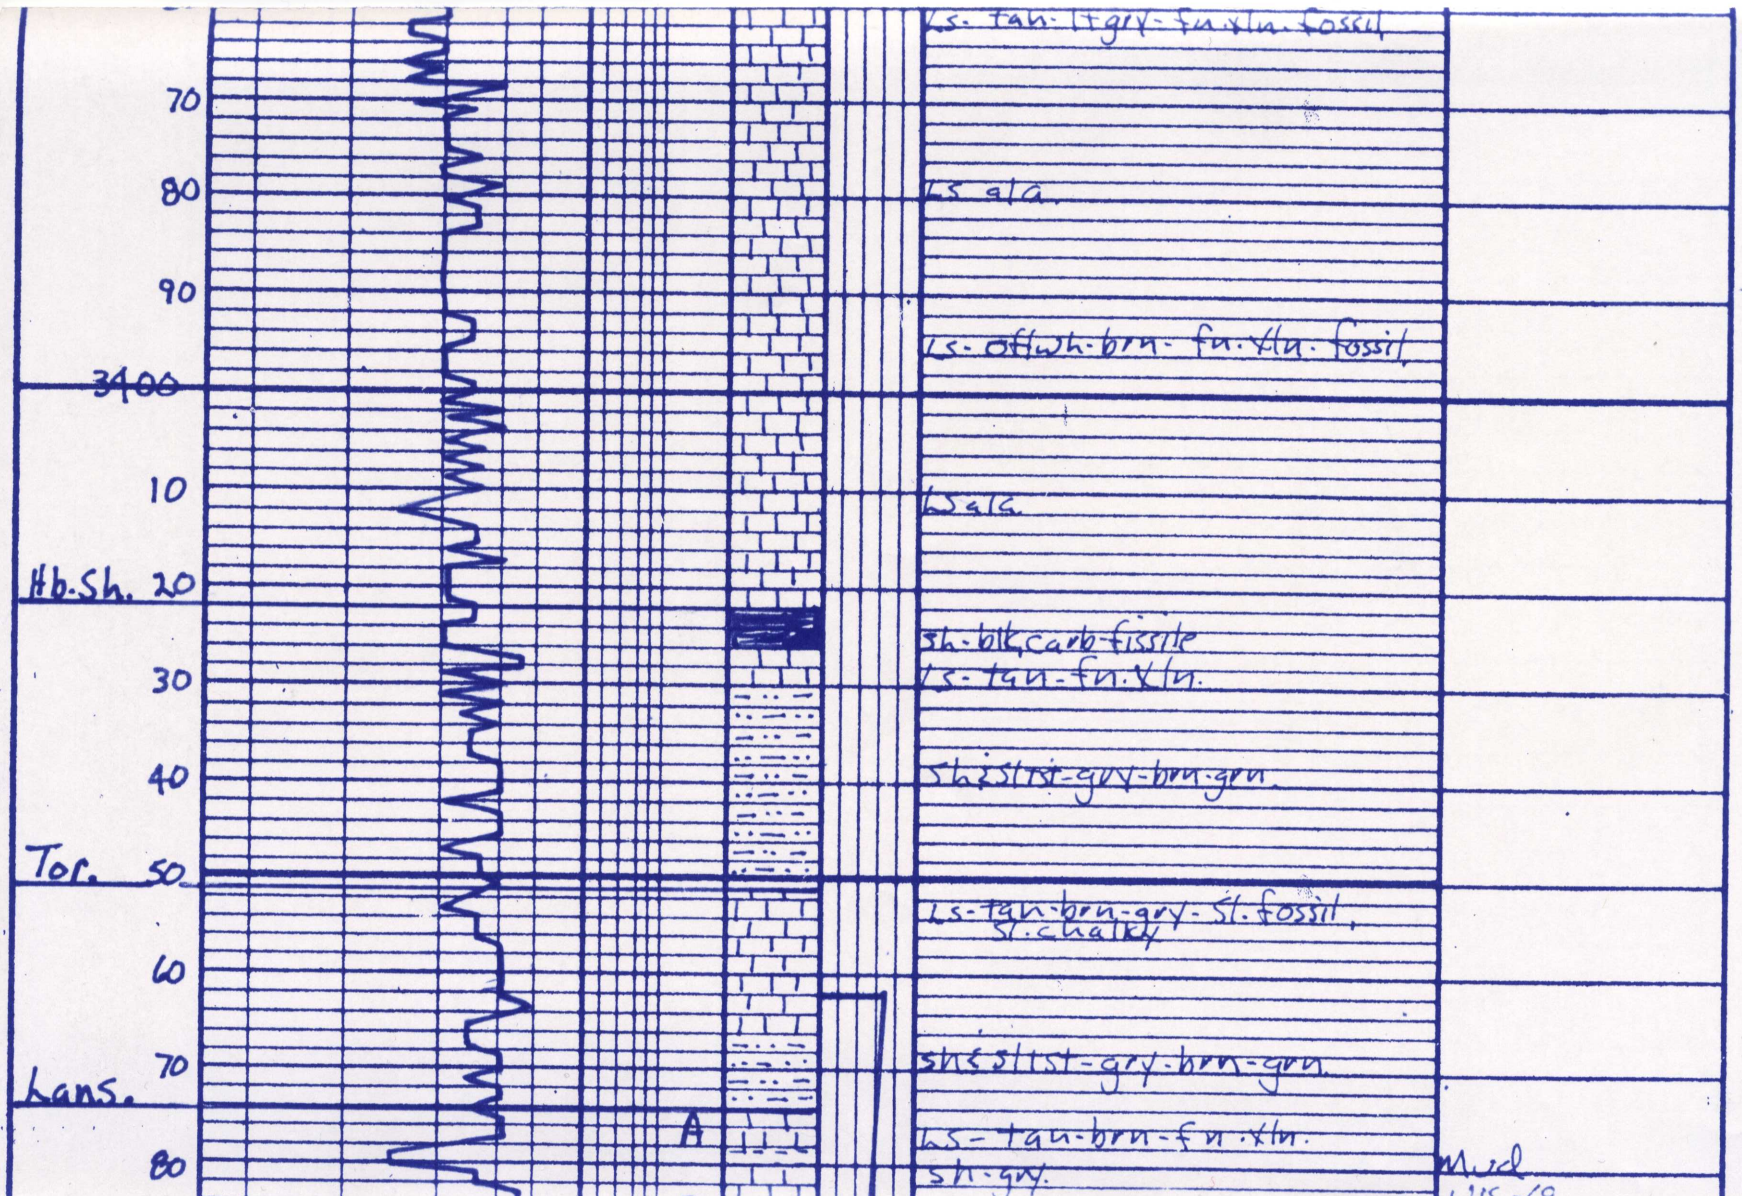 Ls- tan-ltgry-fn.xln.fossil
70
80
Ls a/a.
90
Ls- offwh-brn- fn.xln- fossil.
3400
10
Ls a/a.
Hb.Sh. 20
sh-blk,carb-fissile
Ls-tan-fn.xln.
30
40
sh&sltst-gry-brn-grn.
Tor. 50
Ls-tan-brn-gry-sl.fossil,
sl.chalky
60
70
sh&sltst-gry-brn-grn.
Lans.
A
Ls- tan-brn-fn.xln.
80
sh-gry.
Mud